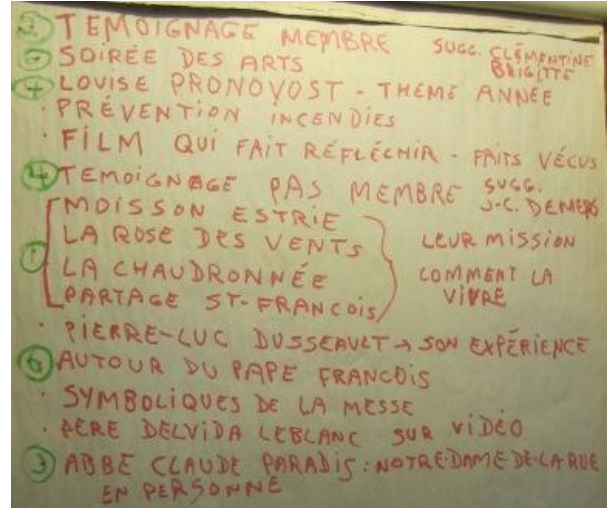 ② TEMOIGNAGE MEMBRE SUGG. CLÉMENTINE
BRIGITTE
SOIRÉE DES ARTS
LOUISE PRONOVOST - THÈME ANNÉE
· PRÉVENTION INCENDIES
· FILM QUI FAIT RÉFLÉCHIR - FAITS VÉCUS
④ TEMOIGNAGE PAS MEMBRE SUGG.
J-C. DEMERS
① MOISSON ESTRIE
LA ROSE DES VENTS
LA CHAUDRONNÉE
PARTAGE ST-FRANCOIS
LEUR MISSION
COMMENT LA
VIVRE
· PIERRE-LUC DUSSEAULT → SON EXPÉRIENCE
⑥ AUTOUR DU PAPE FRANCOIS
· SYMBOLIQUES DE LA MESSE
· PERE DELVIDA LEBLANC SUR VIDÉO
③ ABBÉ CLAUDE PARADIS : NOTRE-DAME-DE-LA-RUE
EN PERSONNE